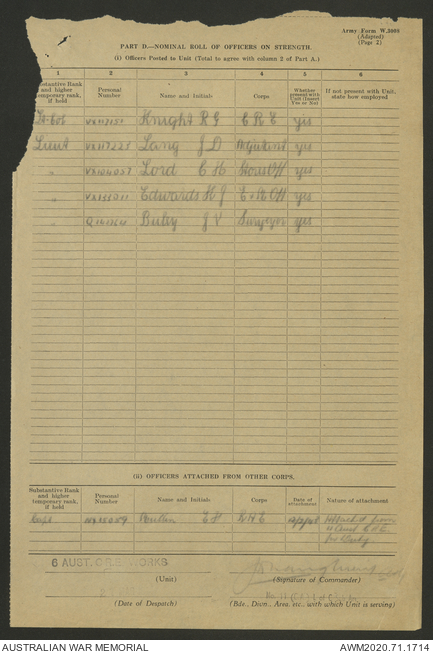 Army Form W.3009
(Adapted)
(Page 2)
PART D.—NOMINAL ROLL OF OFFICERS ON STRENGTH.
(i) Officers Posted to Unit (Total to agree with column 2 of Part A.)
1 2 3 4 5 6
Substantive Rank and higher temporary rank, if held
Personal Number
Name and Initials
Corps
Whether present with Unit (Insert Yes or No)
If not present with Unit, state how employed
Lt-Col Knight R G C R E yes
Lieut VX117223 Lang J D Adjutant yes
" VX104057 Lord C H Stores Off yes
" Edwards H J E & M Off yes
" J V Surveyor yes
(ii) OFFICERS ATTACHED FROM OTHER CORPS.
Substantive Rank and higher temporary rank, if held
Personal Number
Name and Initials
Corps
Date of attachment
Nature of attachment
Capt E H Attached from
for duty
6 AUST. C.R.E. WORKS
(Unit)
(Signature of Commander)
(Date of Despatch)
(Bde., Divn., Area, etc., with which Unit is serving)
AUSTRALIAN WAR MEMORIAL
AWM2020.71.1714